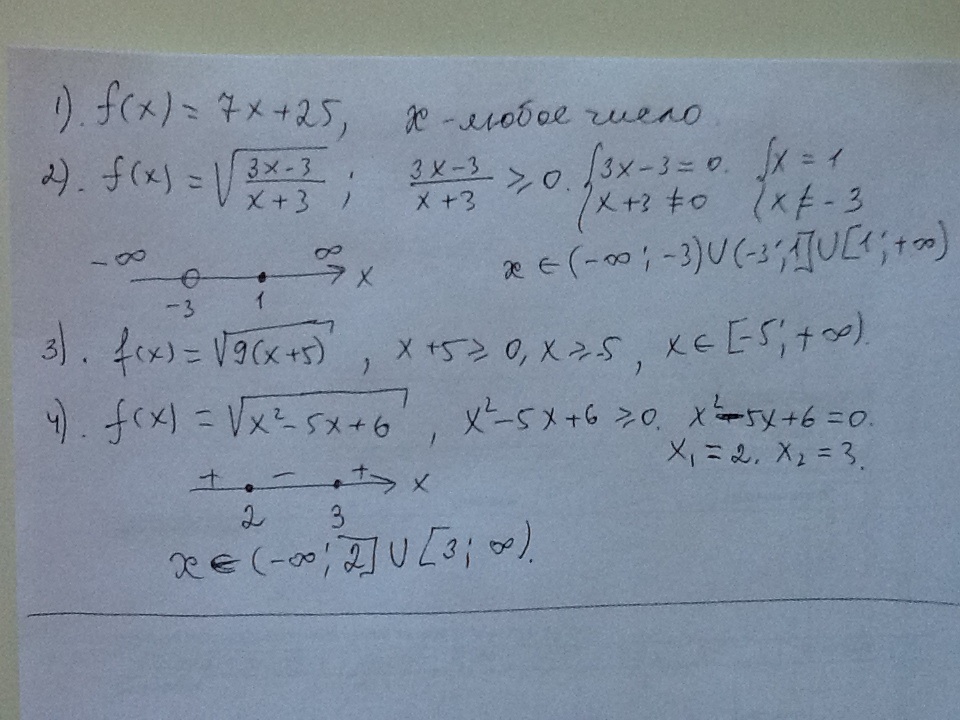 1). f(x) = 7x+25, x - любое число
2). f(x) = √((3x-3)/(x+3)) ; (3x-3)/(x+3) ⩾ 0. {3x-3=0. x+3≠0 {x = 1 x ≠ -3
-∞ ∞ x
-3 1
x ∈ (-∞; -3) ∪ (-3; 1] ∪ [1; +∞)
3). f(x) = √9(x+5) , x+5 ⩾ 0, x ⩾ -5 , x ∈ [-5; +∞).
4). f(x) = √x²-5x+6 , x²-5x+6 ⩾ 0. x²-5x+6 = 0.
x₁ = 2. x₂ = 3.
+ - + x
2 3
x ∈ (-∞; 2] ∪ [3; ∞).